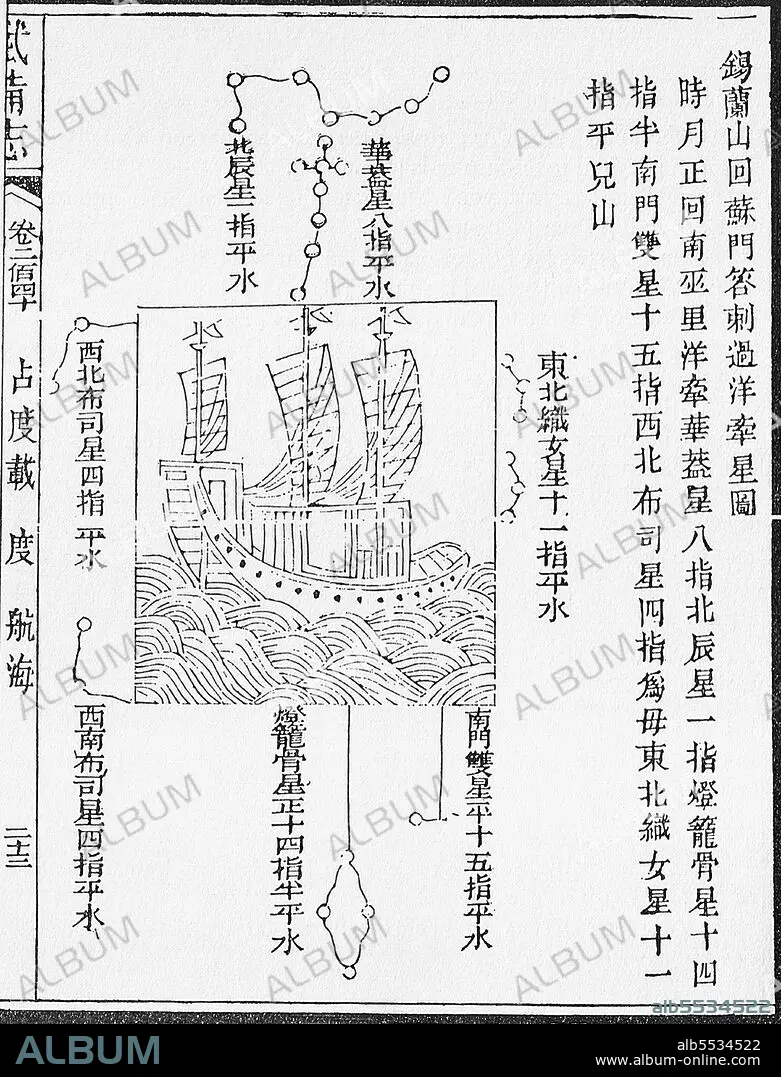 錫蘭山回蘇門荅剌過洋牽星圖
時月正回南巫里洋牽華蓋星八指北辰星一指燈籠骨星十四
指半南門雙星十五指西北布司星四指爲母東北織女星十一
指平兒山
華蓋星八指平水
北辰星一指平水
東北織女星十一指平水
西北布司星四指平水
南門雙星平十五指平水
燈籠骨星正十四指半平水
西南布司星四指平水
武備志
卷二百四十
占度載 度 航海
二十三
ALBUM
alb5534522
ALBUM
alb5534522
www.album-online.com